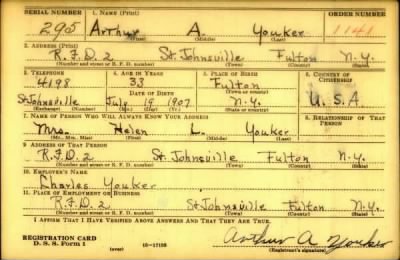 SERIAL NUMBER 1. NAME (Print) ORDER NUMBER
295 Arthur A. Youker 1141
(First) (Middle) (Last)
2. ADDRESS (Print)
R.F.D. 2 St. Johnsville Fulton N.Y.
(Number and street or R. F. D. number) (Town) (County) (State)
3. TELEPHONE 4. AGE IN YEARS 5. PLACE OF BIRTH 6. COUNTRY OF CITIZENSHIP
4198 33 Fulton
DATE OF BIRTH (Town or county)
St Johnsville July 19 1907 N.Y. U.S.A
(Exchange) (Mo.) (Day) (Yr.) (State or country)
7. NAME OF PERSON WHO WILL ALWAYS KNOW YOUR ADDRESS 8. RELATIONSHIP OF THAT PERSON
Mrs. Helen L. Youker
(Mr., Mrs., Miss) (First) (Middle) (Last)
9. ADDRESS OF THAT PERSON
R.F.D. 2 St. Johnsville Fulton N.Y.
(Number and street or R. F. D. number) (Town) (County) (State)
10. EMPLOYER'S NAME
Charles Youker
11. PLACE OF EMPLOYMENT OR BUSINESS
R.F.D. 2 St Johnsville Fulton N.Y.
(Number and street or R. F. D. number) (Town) (County) (State)
I AFFIRM THAT I HAVE VERIFIED ABOVE ANSWERS AND THAT THEY ARE TRUE.
REGISTRATION CARD
D. S. S. Form 1 (over) 16—17105 Arthur A Youker
(Registrant's signature)